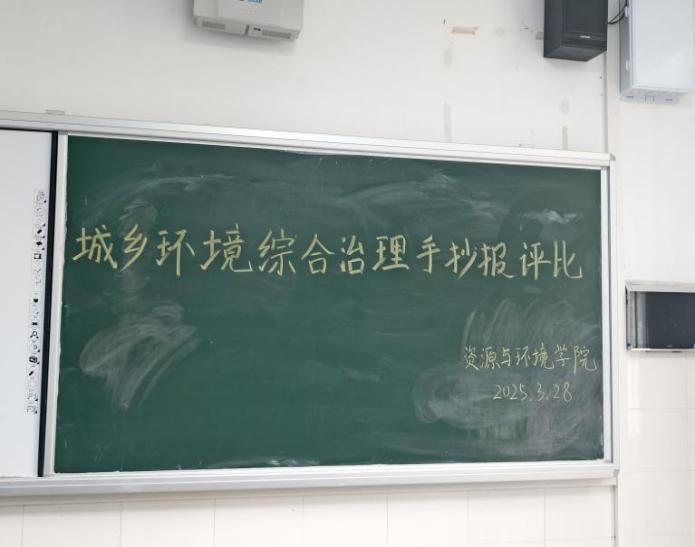 城乡环境综合治理手抄报评比
资源与环境学院
2025.3.28